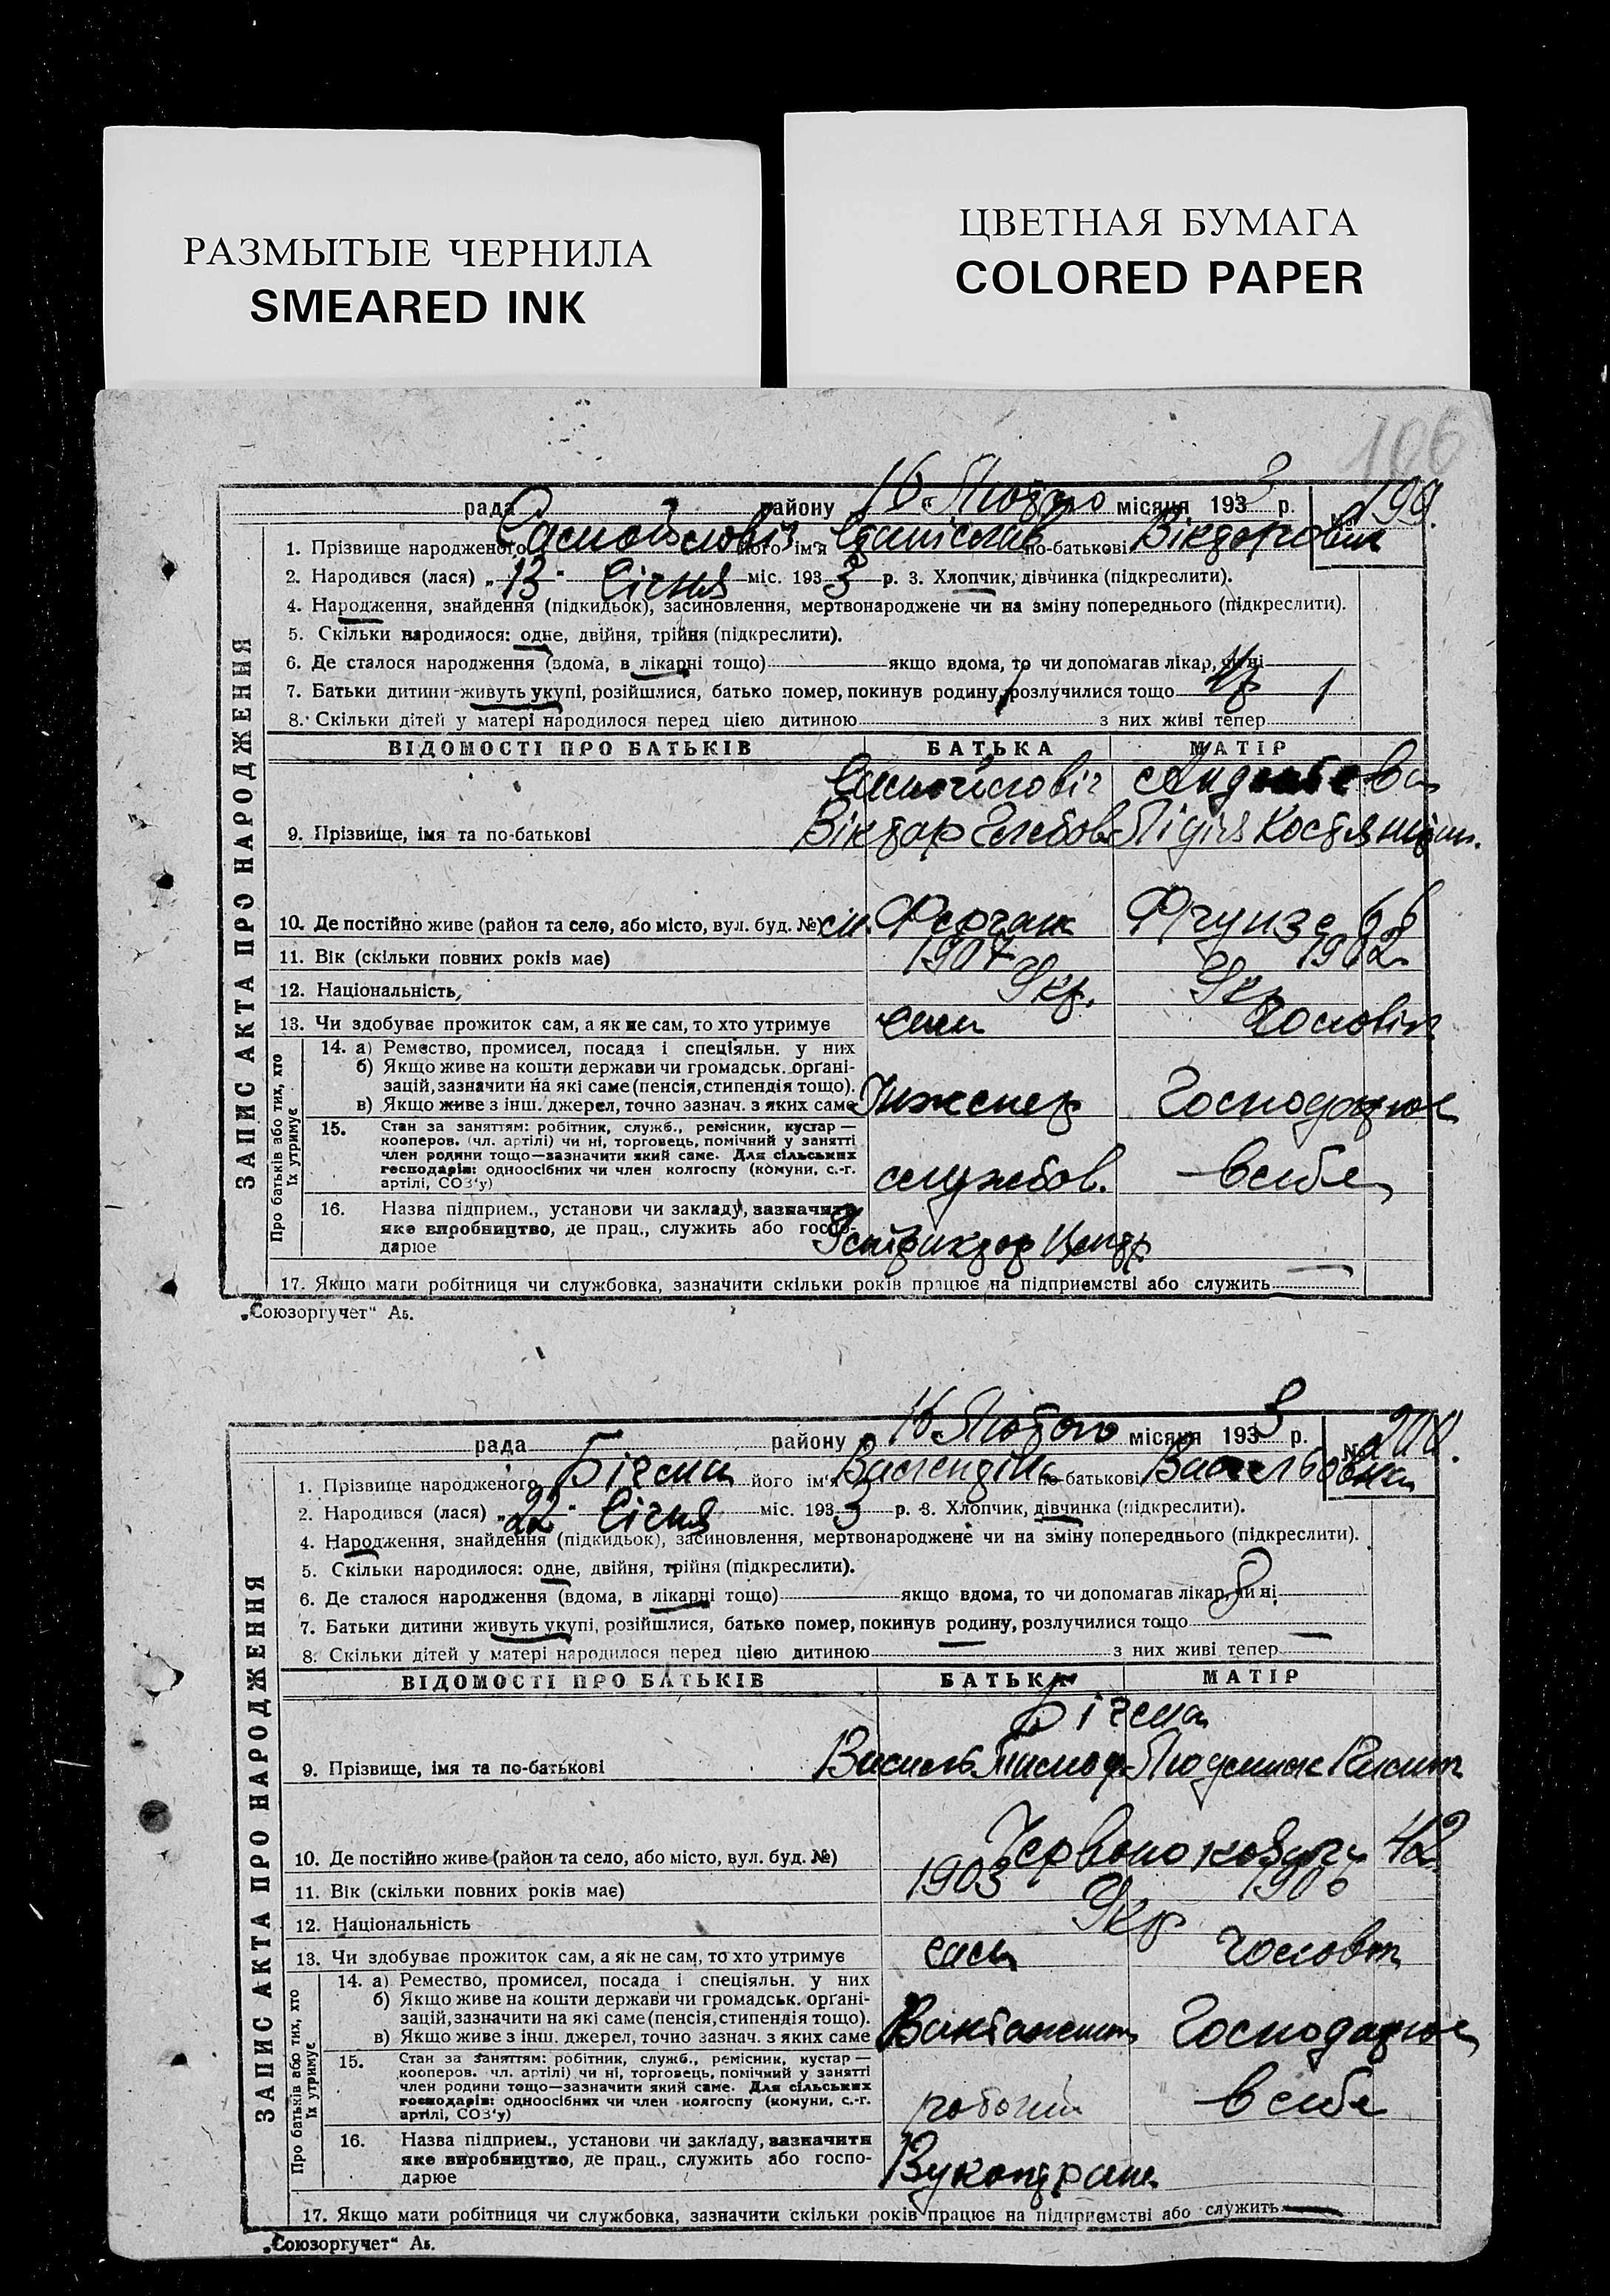 РАЗМЫТЫЕ ЧЕРНИЛА
SMEARED INK
ЦВЕТНАЯ БУМАГА
COLORED PAPER
106
рада району 16 " Лютого місяця 1933 р. № 199.
1. Прізвище народженого Самойлович його ім'я Станіслав по-батькові Вікторович
2. Народився (лася) „13" Січня міс. 1933 р. 3. Хлопчик, дівчинка (підкреслити).
4. Народження, знайдення (підкидьок), засиновлення, мертвонароджене чи на зміну попереднього (підкреслити).
5. Скільки народилося: одне, двійня, трійня (підкреслити).
6. Де сталося народження (вдома, в лікарні тощо) якщо вдома, то чи допомагав лікар, чи ні
7. Батьки дитини живуть укупі, розійшлися, батько помер, покинув родину, розлучилися тощо
8. Скільки дітей у матері народилося перед цією дитиною 1 з них живі тепер 1
ЗАПИС АКТА ПРО НАРОДЖЕННЯ
ВІДОМОСТІ ПРО БАТЬКІВ БАТЬКА МАТІР
Самойлович
9. Прізвище, імя та по-батькові Віктор Глебов Лідія Костянтин.
10. Де постійно живе (район та село, або місто, вул. буд. №) Фрунзе 68
11. Вік (скільки повних років має) 1907 1902
12. Національність Укр. Укр
13. Чи здобуває прожиток сам, а як не сам, то хто утримує сам чоловік
Про батьків або тих, хто їх утримує
14. а) Ремество, промисел, посада і спеціяльн. у них
б) Якщо живе на кошти держави чи громадськ. орґані-
зацій, зазначити на які саме (пенсія, стипендія тощо).
в) Якщо живе з інш. джерел, точно зазнач. з яких саме Інженер Господарює
15. Стан за заняттям: робітник, служб., ремісник, кустар —
кооперов. (чл. артілі) чи ні, торговець, помічний у занятті
член родини тощо—зазначити який саме. Для сільських
господарів: одноосібних чи член колгоспу (комуни, с.-г.
артілі, СОЗ'у) службов. в себе
16. Назва підприєм., установи чи закладу, зазначити
яке виробництво, де прац., служить або госпо-
дарює
17. Якщо мати робітниця чи службовка, зазначити скільки років працює на підприємстві або служить —
„Союзоргучет" Аб.
рада району 16 Лютого місяця 1933 р. № 200.
1. Прізвище народженого Бігема його ім'я Валентіна по-батькові Васильовна
2. Народився (лася) „22" Січня міс. 1933 р. 3. Хлопчик, дівчинка (підкреслити).
4. Народження, знайдення (підкидьок), засиновлення, мертвонароджене чи на зміну попереднього (підкреслити).
5. Скільки народилося: одне, двійня, трійня (підкреслити).
6. Де сталося народження (вдома, в лікарні тощо) якщо вдома, то чи допомагав лікар, чи ні
7. Батьки дитини живуть укупі, розійшлися, батько помер, покинув родину, розлучилися тощо
8. Скільки дітей у матері народилося перед цією дитиною — з них живі тепер —
ЗАПИС АКТА ПРО НАРОДЖЕННЯ
ВІДОМОСТІ ПРО БАТЬКІВ БАТЬКА МАТІР
Бігема
9. Прізвище, імя та по-батькові Василь Тимоф.
10. Де постійно живе (район та село, або місто, вул. буд. №) 42
11. Вік (скільки повних років має) 1903 1906
12. Національність Укр
13. Чи здобуває прожиток сам, а як не сам, то хто утримує сам чоловік
Про батьків або тих, хто їх утримує
14. а) Ремество, промисел, посада і спеціяльн. у них
б) Якщо живе на кошти держави чи громадськ. орґані-
зацій, зазначити на які саме (пенсія, стипендія тощо).
в) Якщо живе з інш. джерел, точно зазнач. з яких саме Вантажник Господарює
15. Стан за заняттям: робітник, служб., ремісник, кустар —
кооперов. чл. артілі) чи ні, торговець, помічний у занятті
член родини тощо—зазначити який саме. Для сільських
господарів: одноосібних чи член колгоспу (комуни, с.-г.
артілі, СОЗ'у) робочий в себе
16. Назва підприєм., установи чи закладу, зазначити
яке виробництво, де прац., служить або госпо-
дарює
17. Якщо мати робітниця чи службовка, зазначити скільки років працює на підприємстві або служить —
„Союзоргучет" Аб.